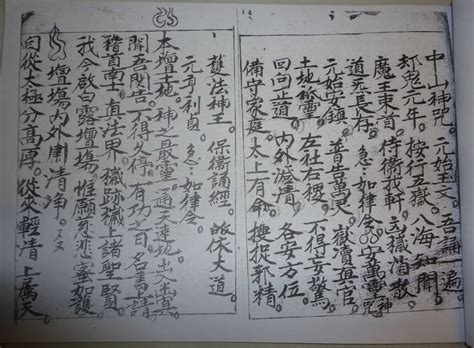 中山神咒。元始玉文。吾誦一遍
却鬼元年。按行五嶽。八海知聞
魔王束首。侍衛我軒。凶穢消散
道炁長存。急如律令。安萬靈神咒
元始安鎮。普告萬灵。嶽瀆真官
土地祇灵。左社右稷。不得妄驚
回向正道。內外澄清。各安方位
備守家庭。太上有命。搜捉邪精
護法神王。保衛誦經。皈依大道
元亨利貞。急如律令
本壇土地。神之最靈。通天達地。出入幽冥
聞吾関告。不得久停。有功之日。名書上清
稽首南 真法界。穢跡 上諸聖賢
我今啟白露壇場。惟願慈悲密加護
壇場內外肅清淨。又又
自從太極分高厚。從來輕清上属天